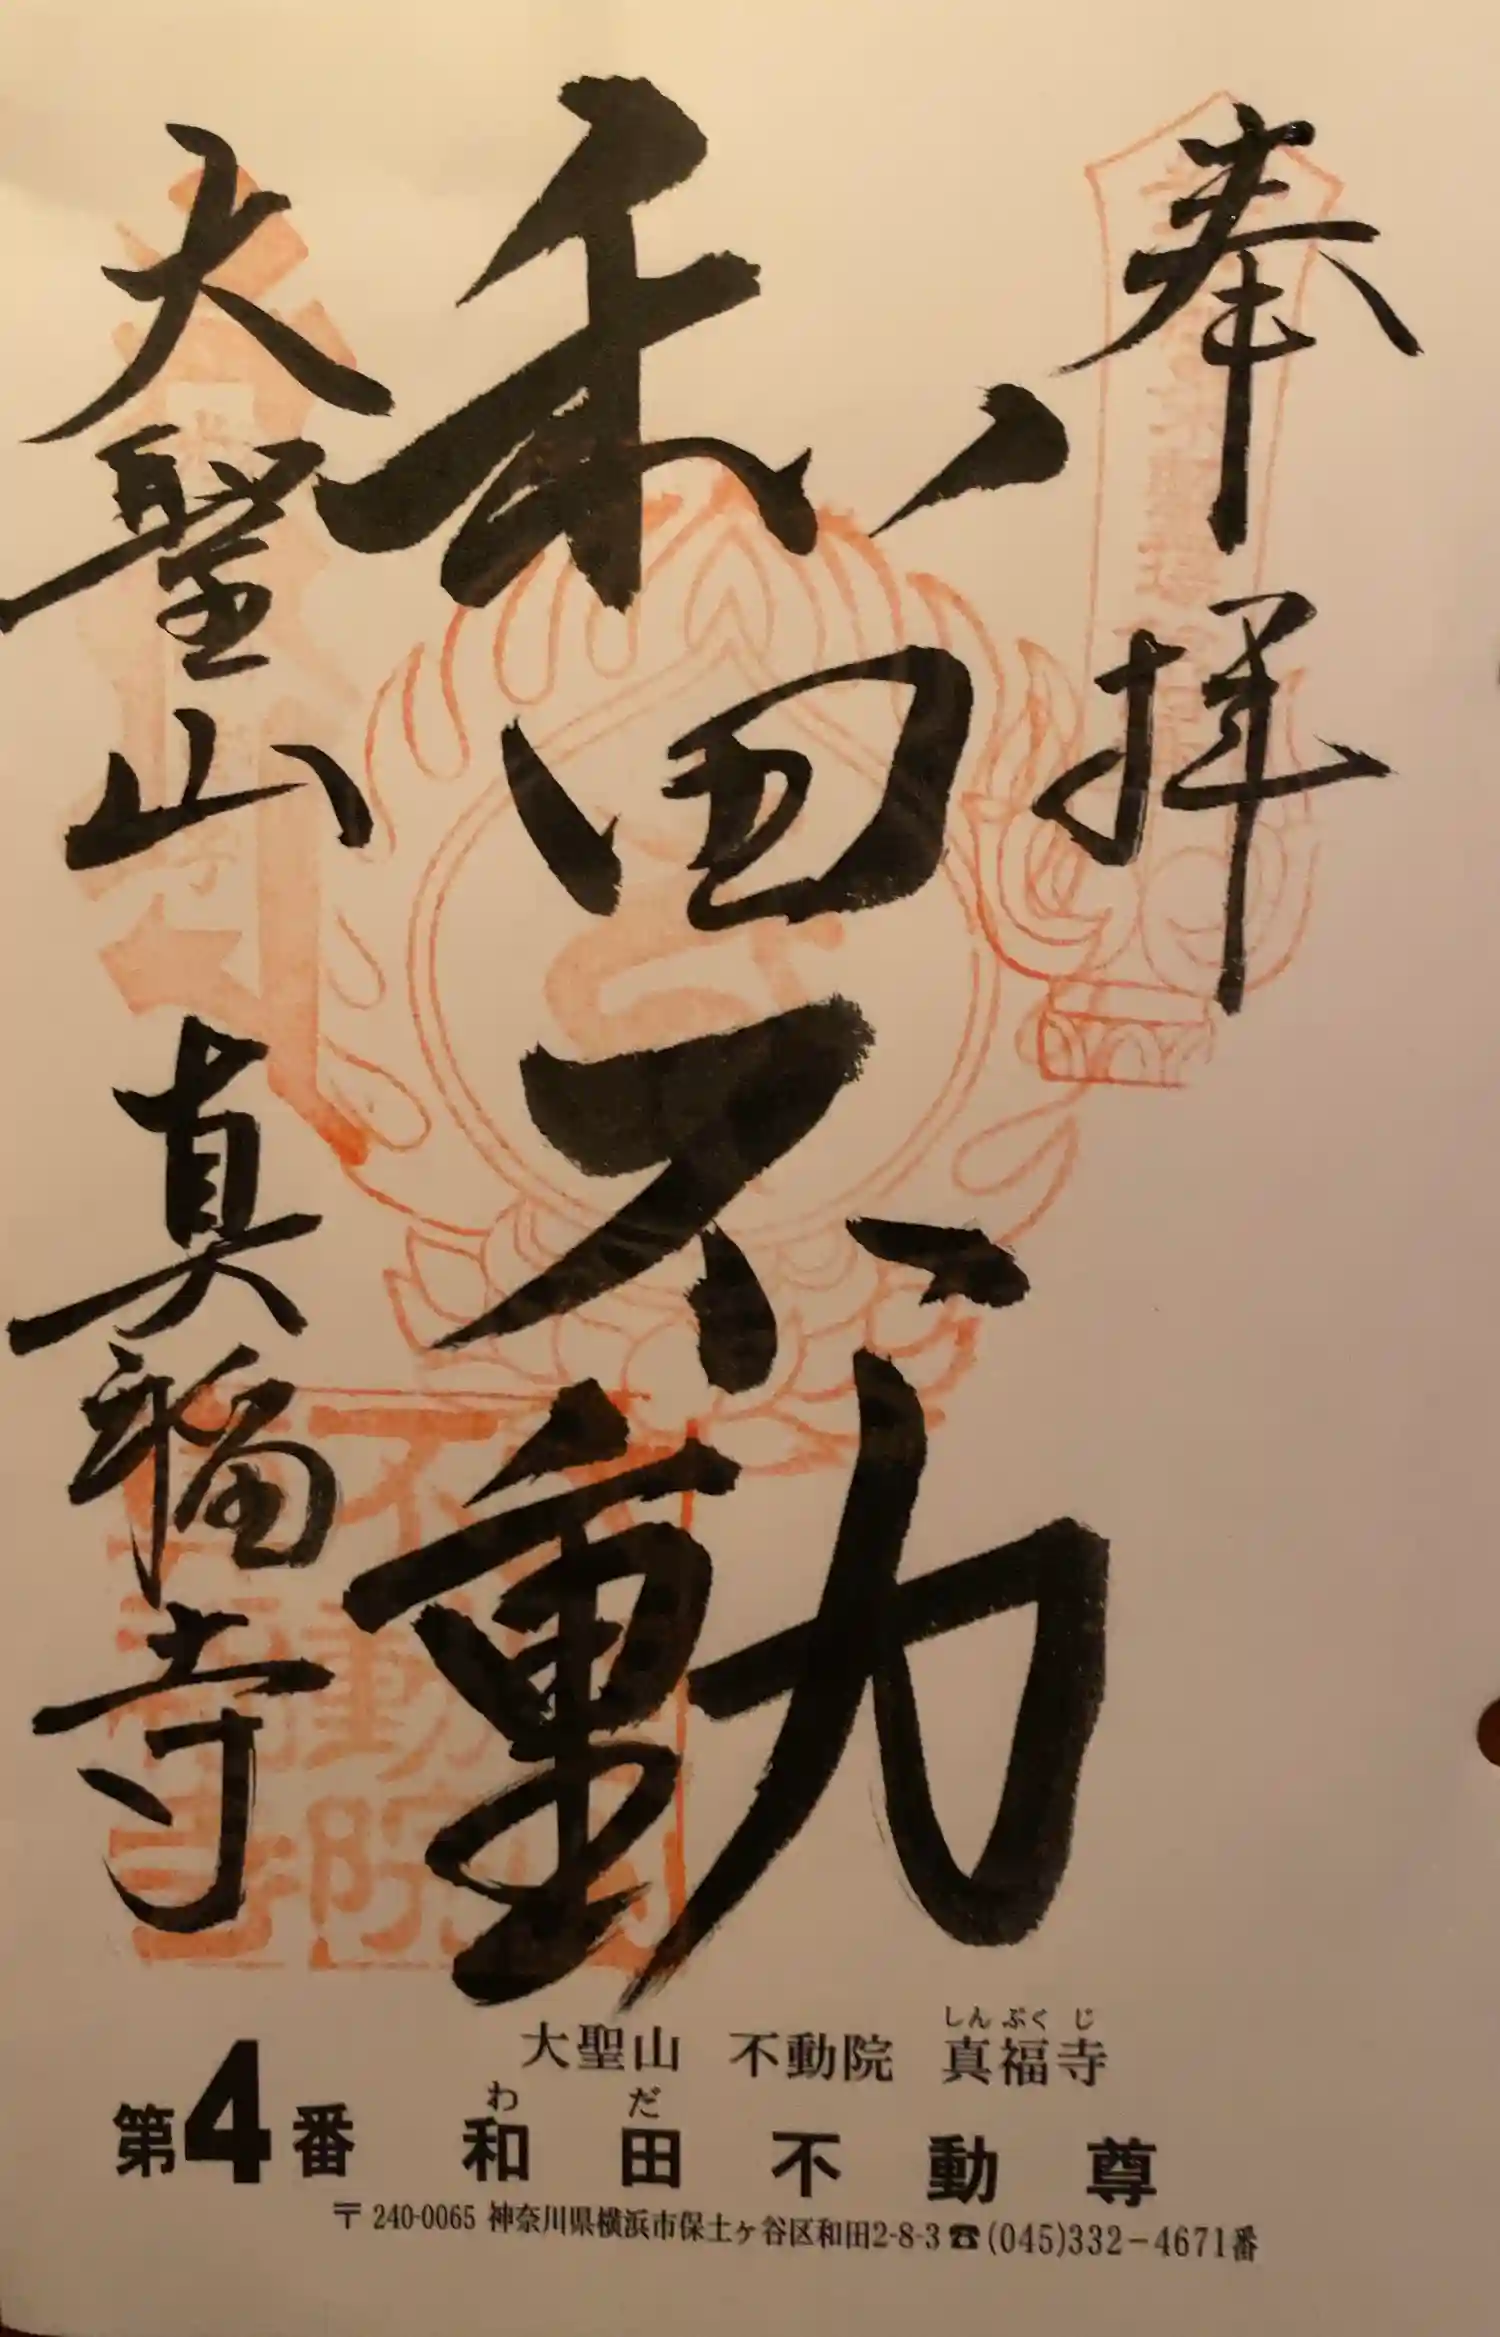 奉拝
和田不動
大聖山 真福寺
しんぷくじ
大聖山 不動院 真福寺
わだ
第4番 和田不動尊
〒240-0065 神奈川県横浜市保土ヶ谷区和田2-8-3☎(045)332-4671番